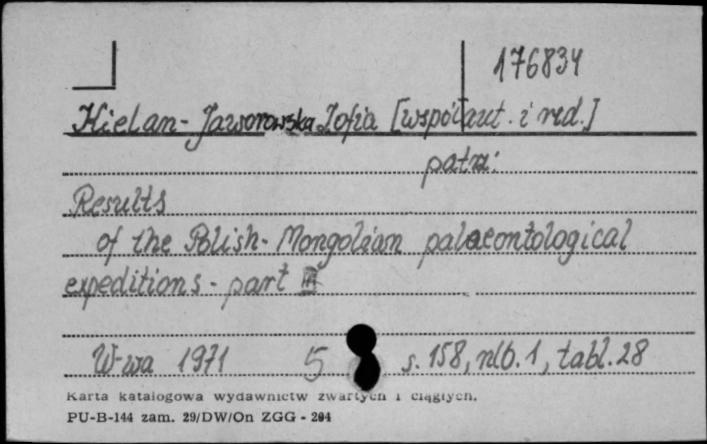 176834
Kielan-Jaworowska Zofia [współaut. i red.]
patrz:
Results
of the Polish-Mongolian palaeontological
expeditions - part III
W-wa 1971 5 s. 158, nlb. 1, tabl. 28
Karta katalogowa wydawnictw zwartych i ciągłych.
PU-B-144 zam. 29/DW/On ZGG - 204